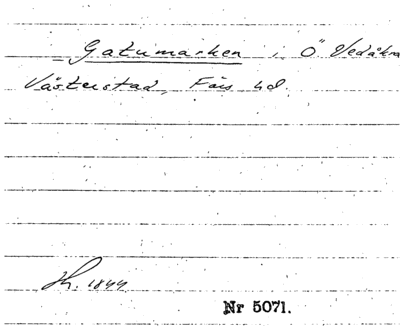 Gatumarken i Ö. Vedåkra
Västerstad, Färs hd.
Hh. 1844
Nr 5071.